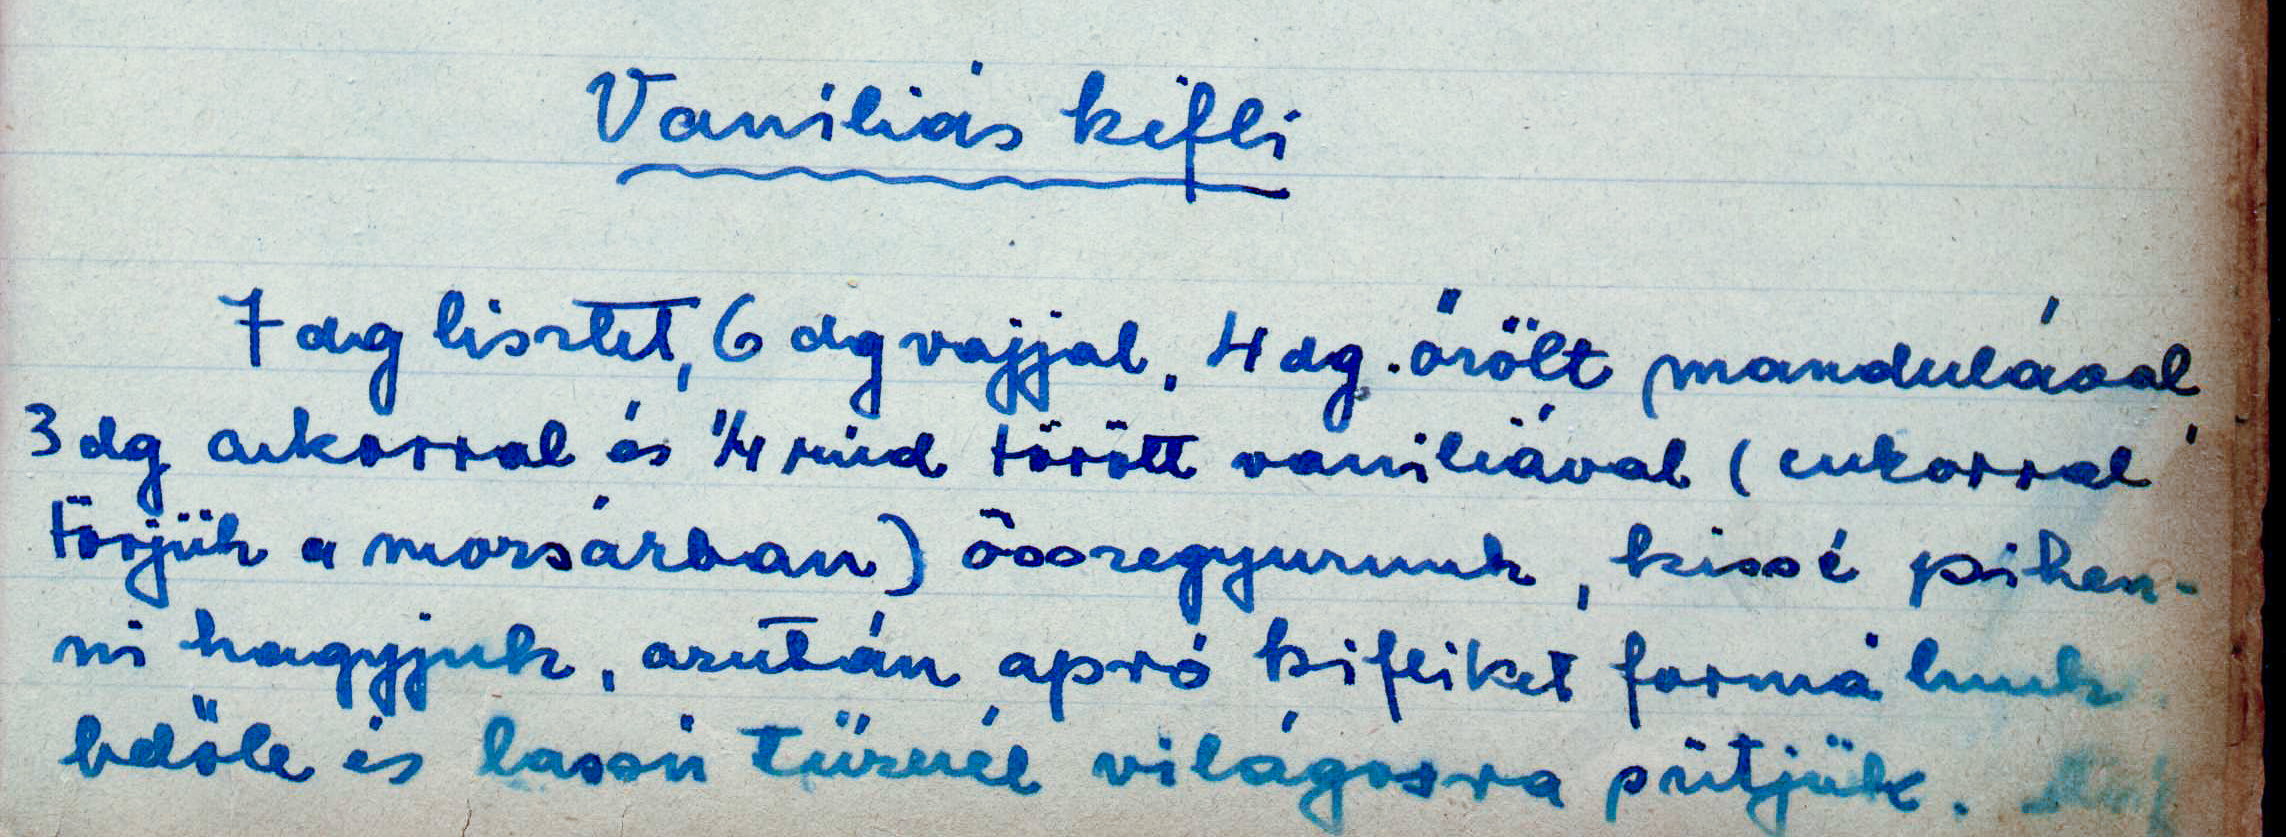 Vaníliás kifli
7 dg lisztet, 6 dg vajjal, 4 dg. őrölt mandulával,
3 dg cukorral és 1/4 rúd törött vaniliával (cukorral
törjük a mozsárban) összegyurunk, kissé pihen-
ni hagyjuk, azután apró kifliket formálunk
belőle és lassú tűznél világosra sütjük.